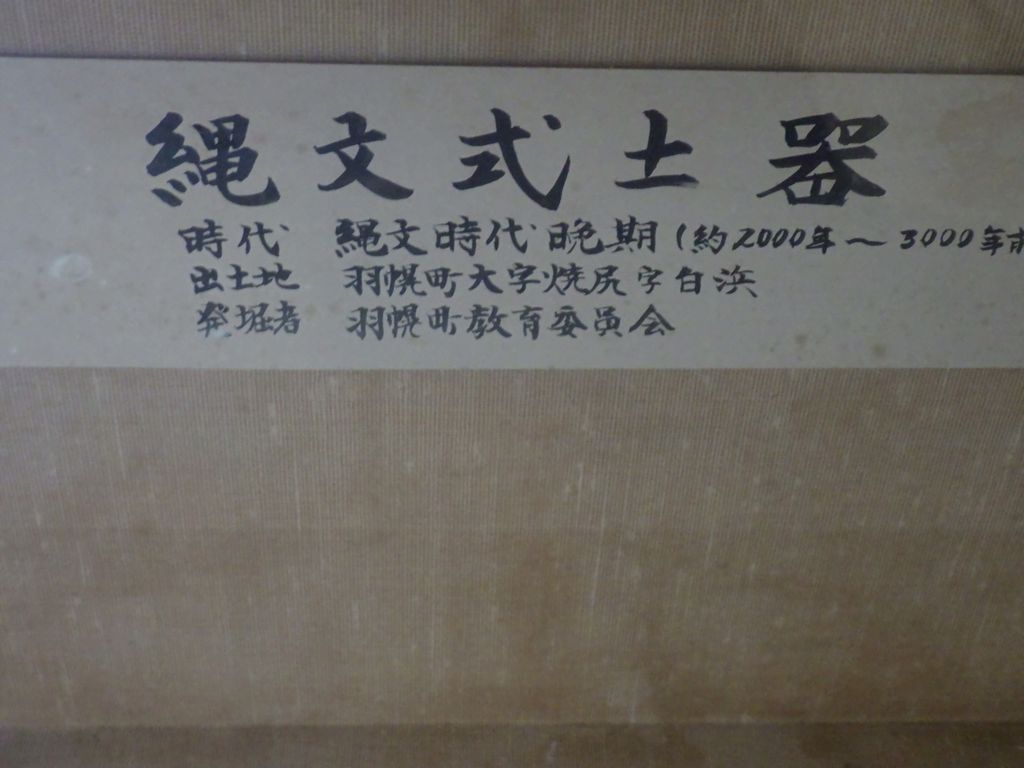 縄文式土器
時代 縄文時代晩期(約2000年〜3000年前
出土地 羽幌町大字焼尻字白浜
発掘者 羽幌町教育委員会